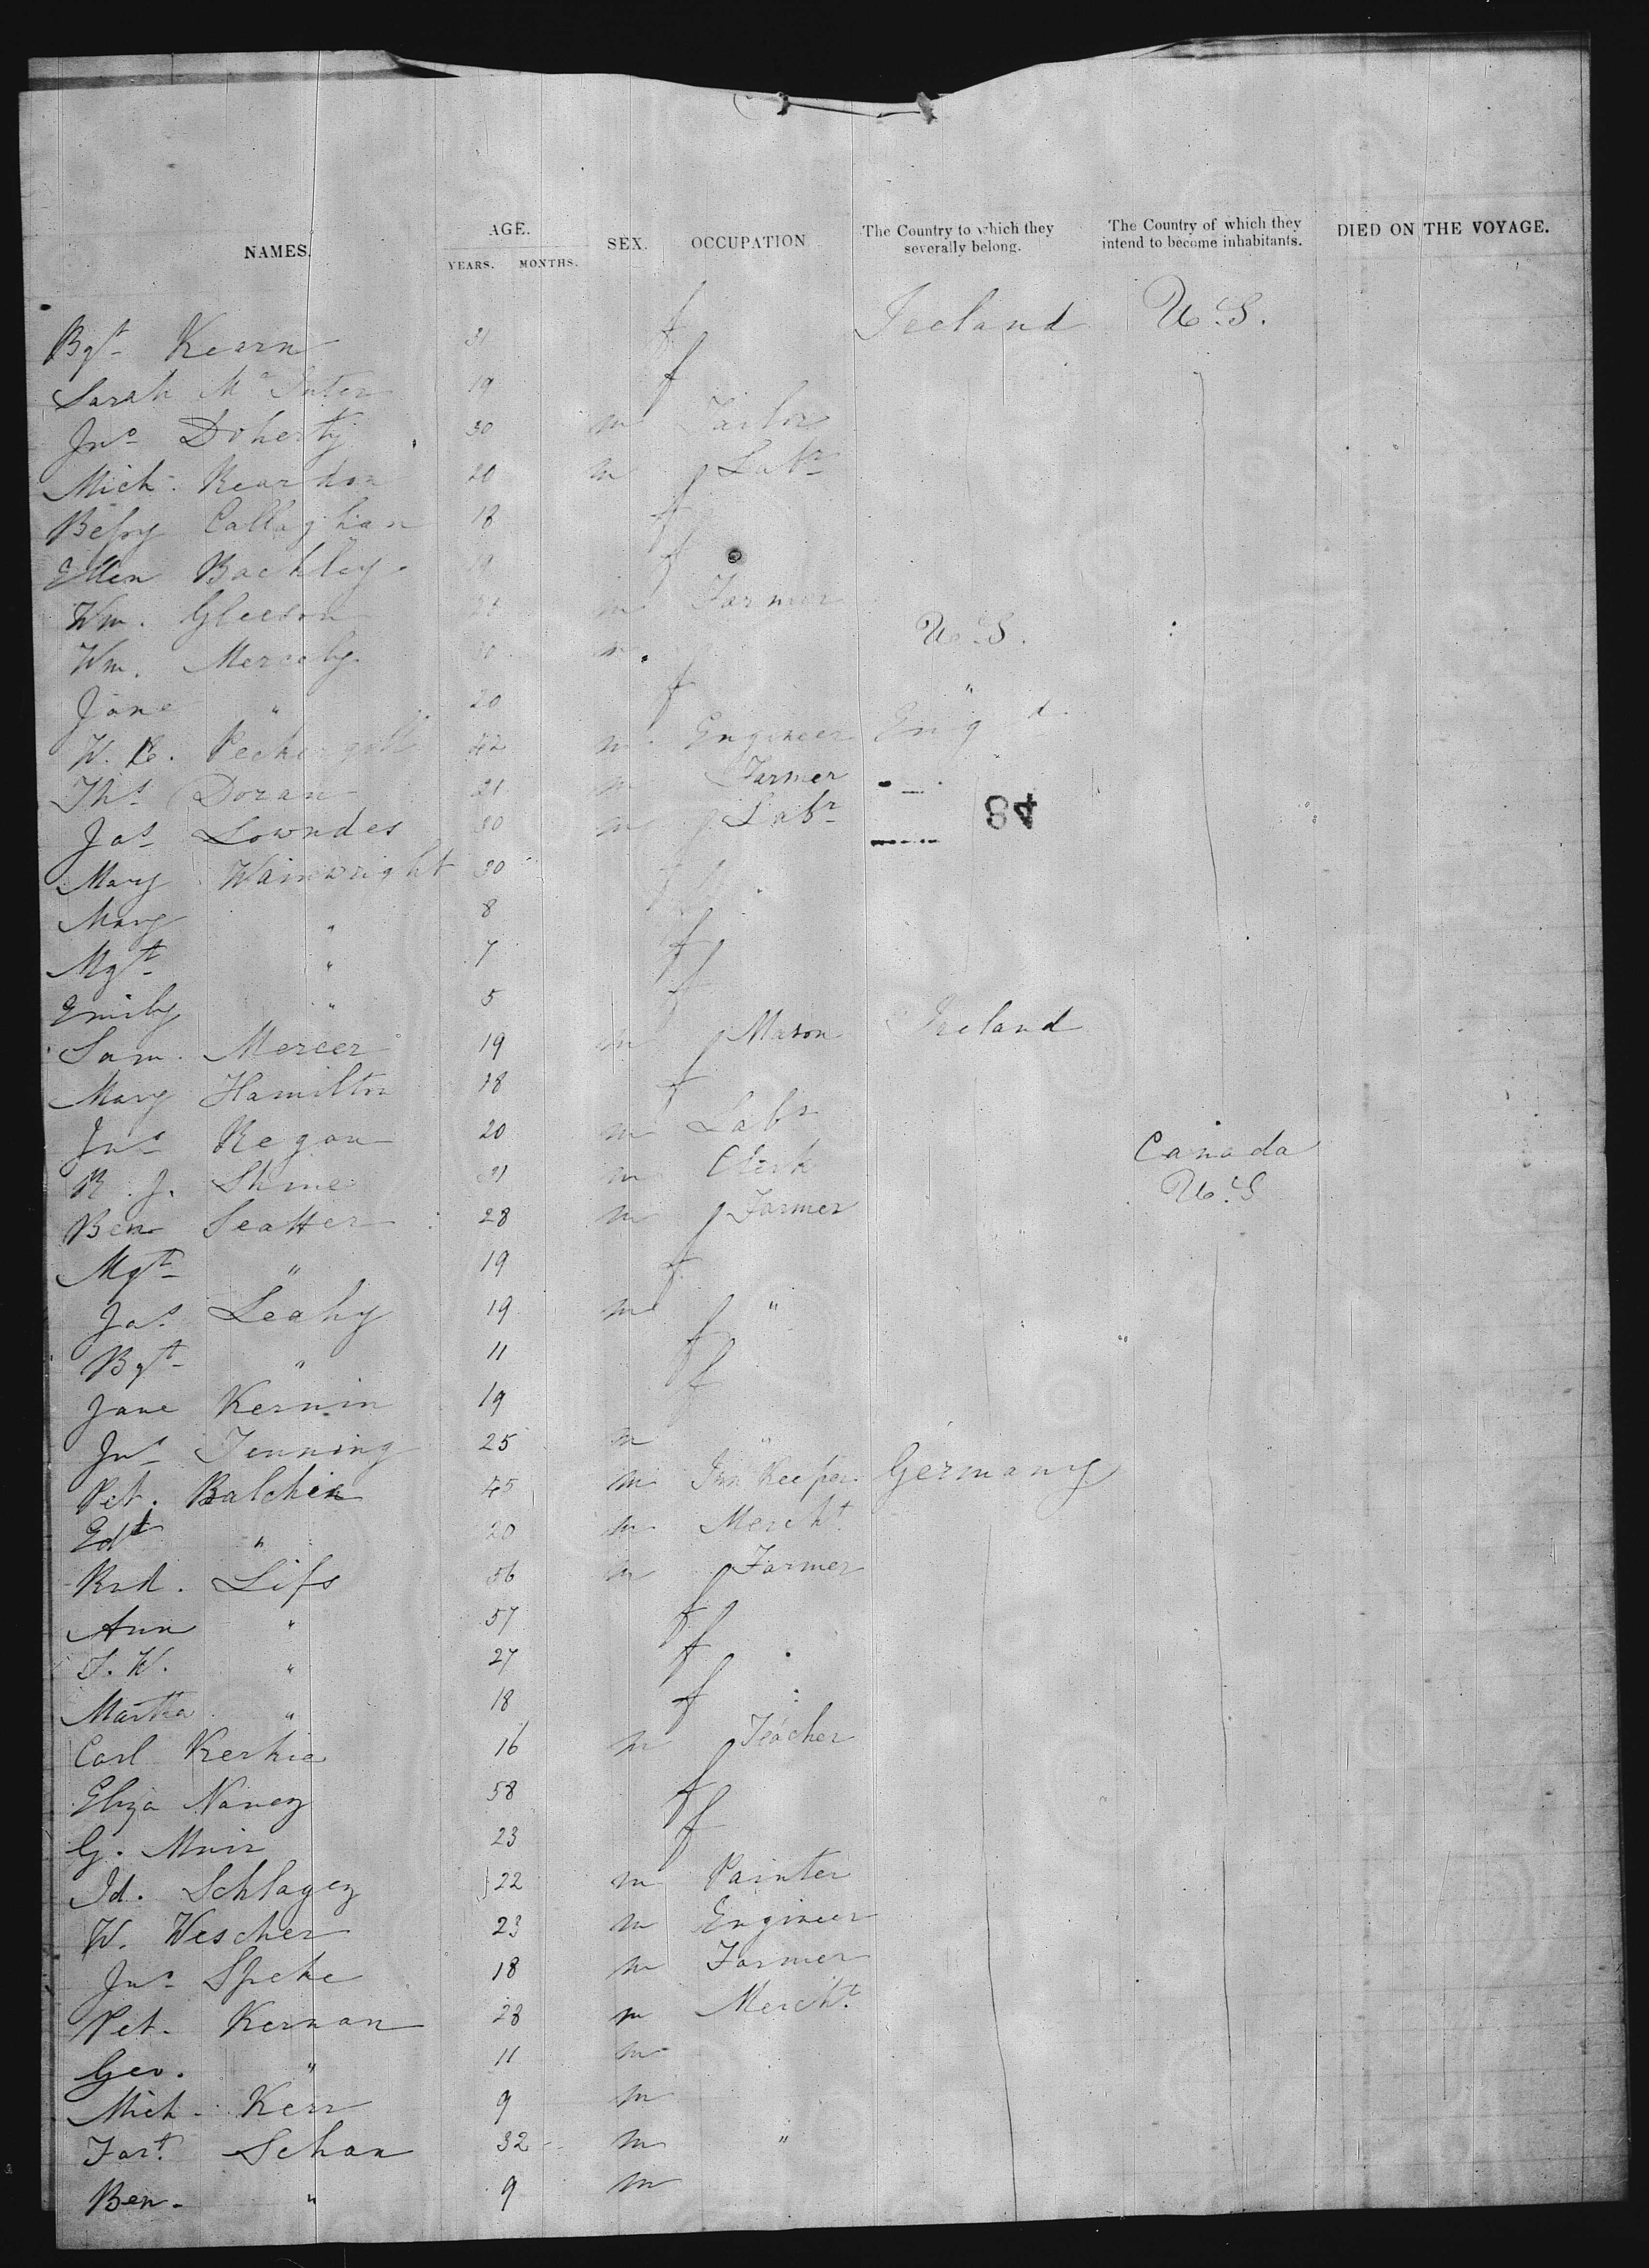 NAMES. AGE. YEARS. MONTHS. SEX. OCCUPATION The Country to which they severally belong. The Country of which they intend to become inhabitants. DIED ON THE VOYAGE.
Bgt Kearn 31 f Ireland U.S.
Sarah Mc 19 f
Jno Doherty 30 m Tailor
Mich. Reardon 20 m Labr
Bessy Callaghan 18 f
Ellen Bachley 19 f
Wm. Gleeson m Farmer
Wm. m U.S.
Jane " 20 f "
W. 42 m Engineer Engd
Ths Doran 21 m Farmer
Jas Lowndes 30 m Labr
84
Mary Wainwright 30 f
Mary " 8 f
Mgt " 7 f
Emily " 5 f
Sam. Mercer 19 m Mason Ireland
Mary Hamilton 18 f
Jno Regan 20 m Labr
R. J. Shine 21 m Clerk Canada
Ben Seatter 28 m Farmer U.S
Mgt " 19 f
Jas Leahy 19 m "
Bgt " 11 f
Jane Kernin 19 f
Jno Jenning 25 m "
Pet. Balchin 45 m Inn Keeper Germany
Edt " 20 m Mercht
Rid. Liss 56 m Farmer
Ann " 57 f
S. W. " 27 f
Martha " 18 f
Carl Kerkie 16 m Teacher
Eliza Nancy 58 f
G. Muir 23 f
Id. Schlagey 22 m Painter
W. Wescher 23 m Engineer
Jno Speke 18 m Farmer
Pet. Kernan 28 m Mercht
Geo. " 11 m
Mich. Kerr 9 m
Fart. Schan 32 m "
Ben. " 9 m